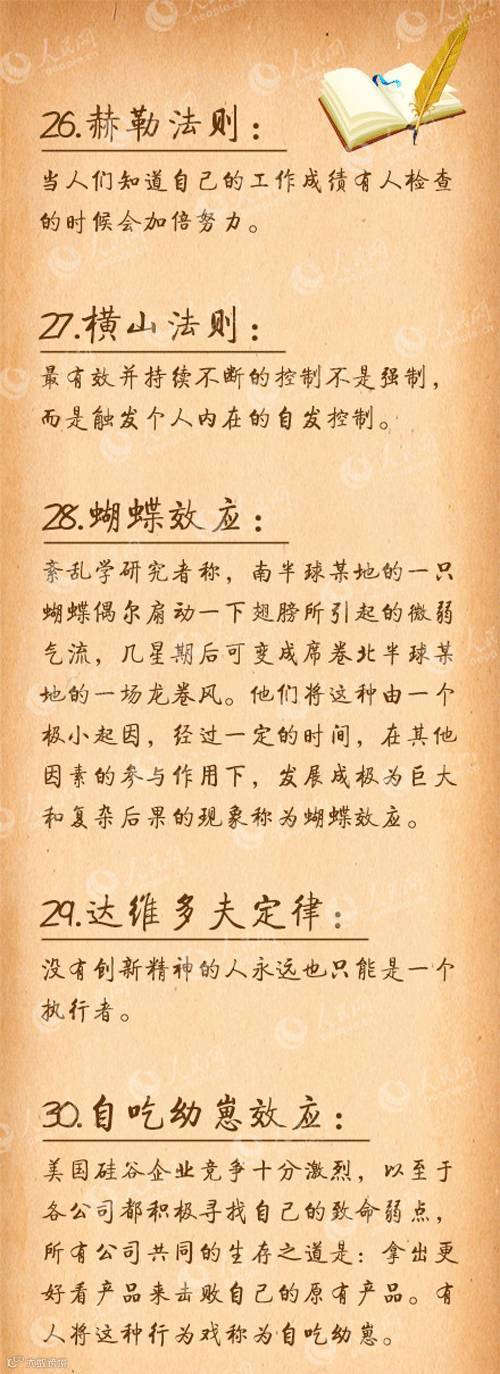 人民网
people.cn
26.赫勒法则：
当人们知道自己的工作成绩有人检查
的时候会加倍努力。
27.横山法则：
最有效并持续不断的控制不是强制，
而是触发个人内在的自发控制。
28.蝴蝶效应：
紊乱学研究者称，南半球某地的一只
蝴蝶偶尔扇动一下翅膀所引起的微弱
气流，几星期后可变成席卷北半球某
地的一场龙卷风。他们将这种由一个
极小起因，经过一定的时间，在其他
因素的参与作用下，发展成极为巨大
和复杂后果的现象称为蝴蝶效应。
29.达维多夫定律：
没有创新精神的人永远也只能是一个
执行者。
30.自吃幼崽效应：
美国硅谷企业竞争十分激烈，以至于
各公司都积极寻找自己的致命弱点，
所有公司共同的生存之道是：拿出更
好看产品来击败自己的原有产品。有
人将这种行为戏称为自吃幼崽。